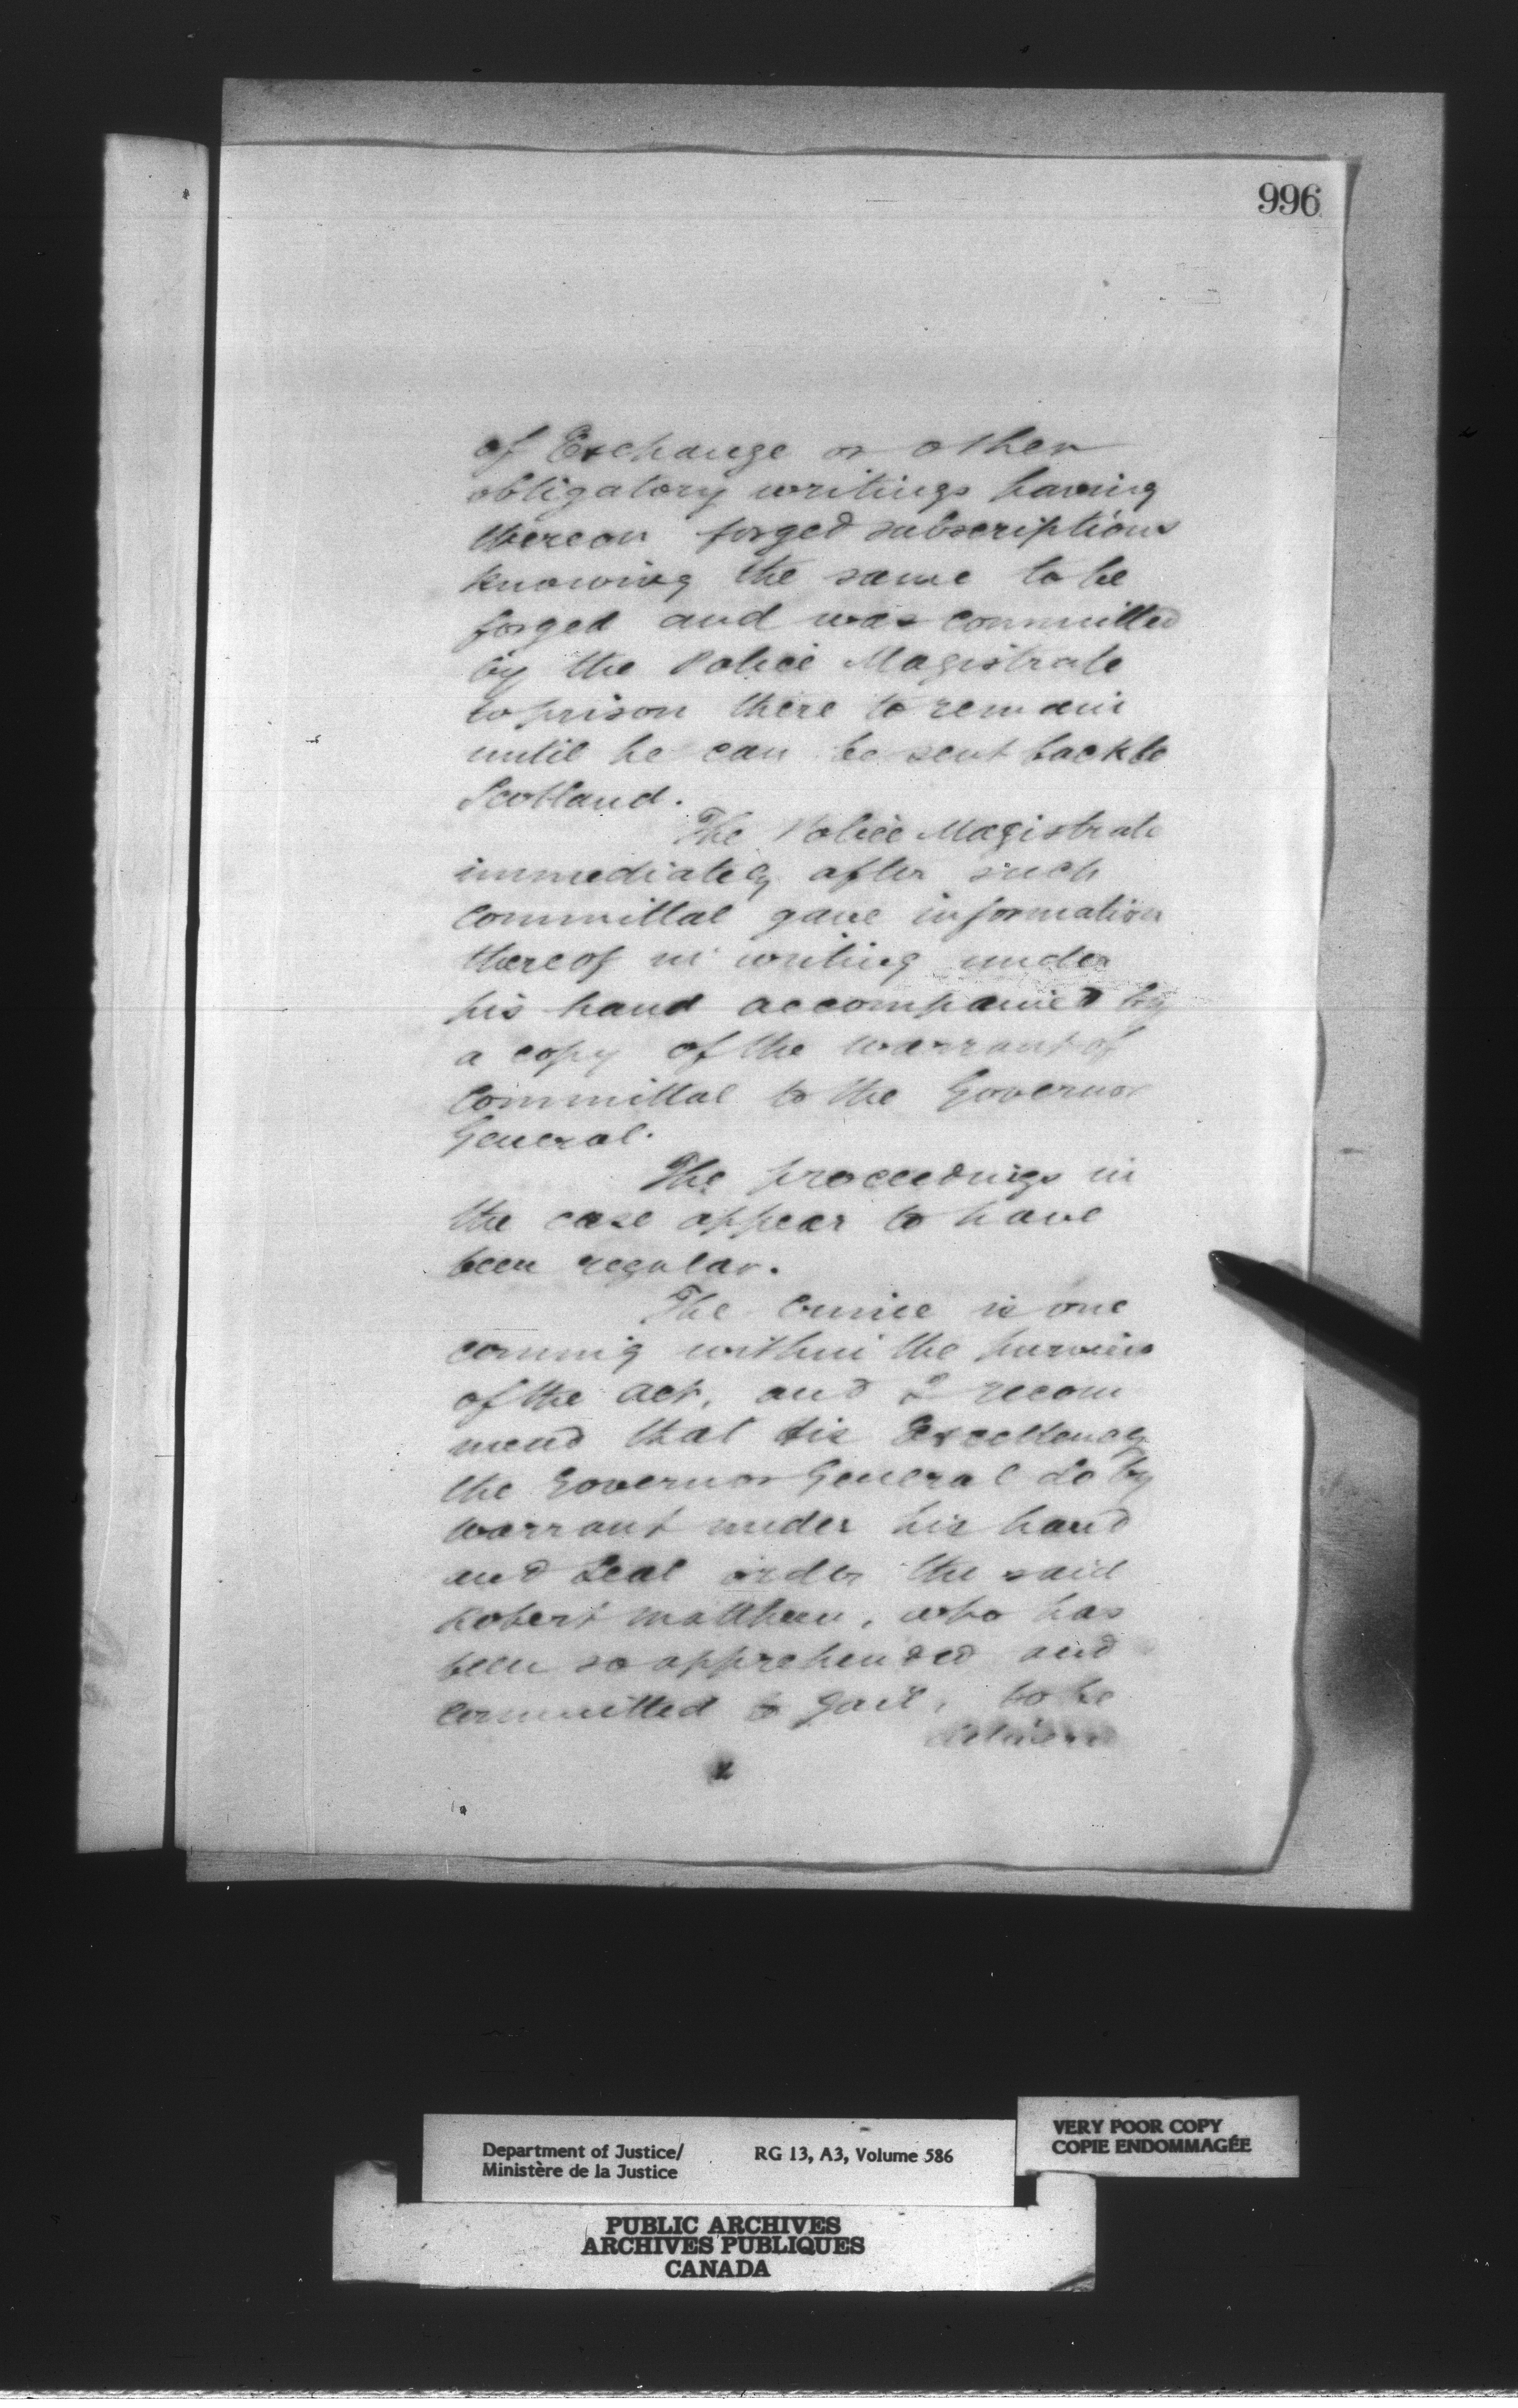 996
of Exchange or other
obligatory writings having
thereon forged subscriptions
knowing the same to be
forged and was committed
by the Police Magistrate
to prison there to remain
until he can be sent back to
Scotland.
The Police Magistrate
immediately after such
committal gave information
thereof in writing under
his hand accompanied by
a copy of the warrant of
Committal to the Governor
General.
The proceedings in
the case appear to have
been regular.
The Crime is one
coming within the purview
of the Act, and I recom
mend that His Excellency
the Governor General do by
warrant under his hand
and Seal order the said
Robert Matthew, who has
been so apprehended and
committed to Gaol, to be
delivered
Department of Justice/
Ministère de la Justice
RG 13, A3, Volume 586
VERY POOR COPY
COPIE ENDOMMAGÉE
PUBLIC ARCHIVES
ARCHIVES PUBLIQUES
CANADA